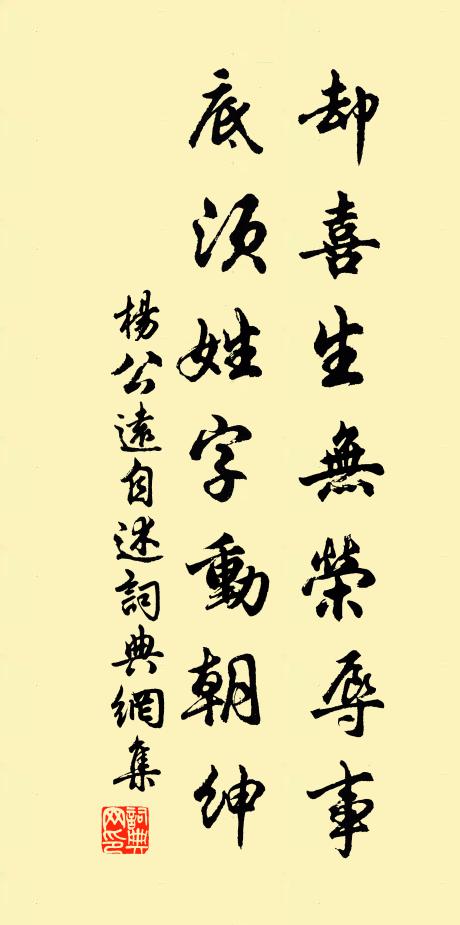 却喜生無榮辱事
底須姓字動朝紳
楊公遠自述詞典網集
詞典網印